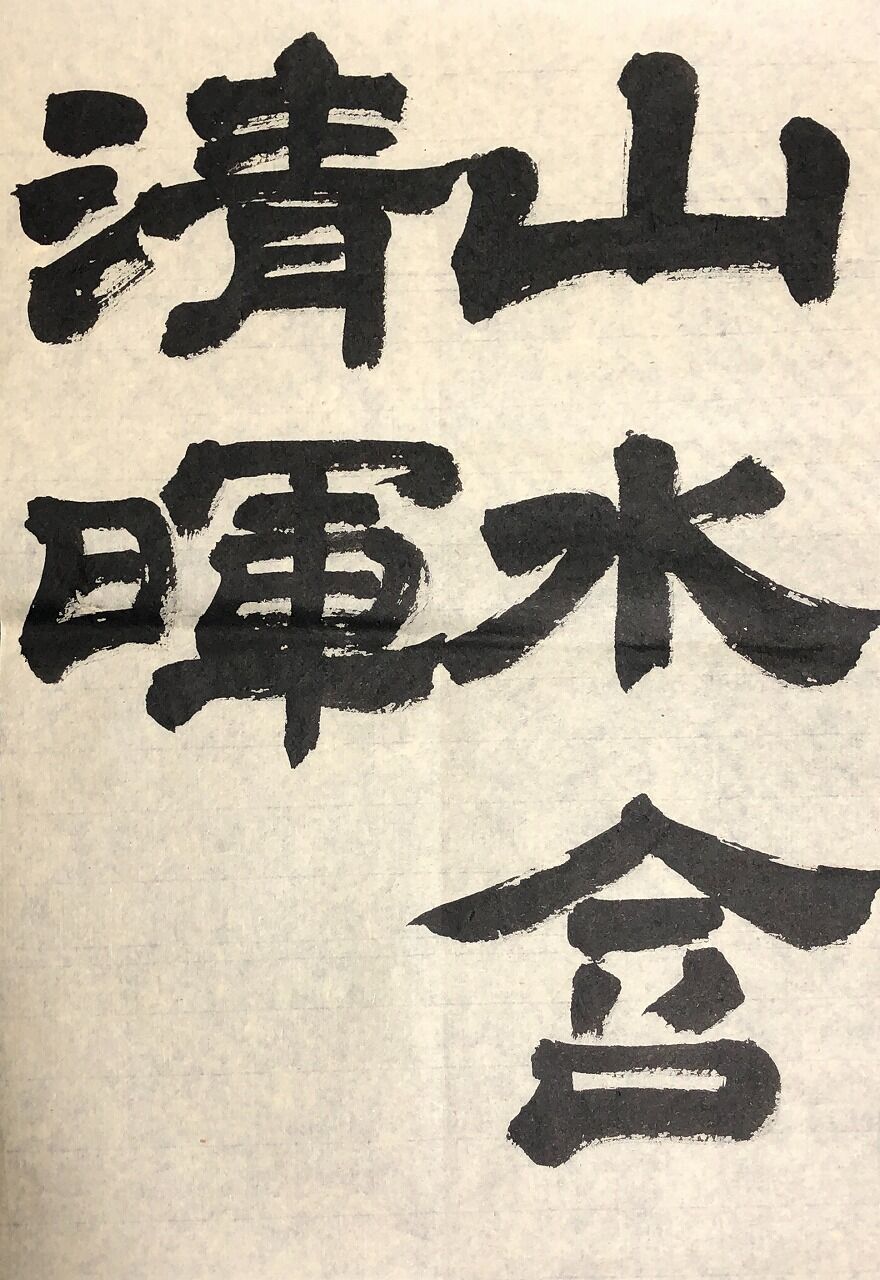 山水含
清暉